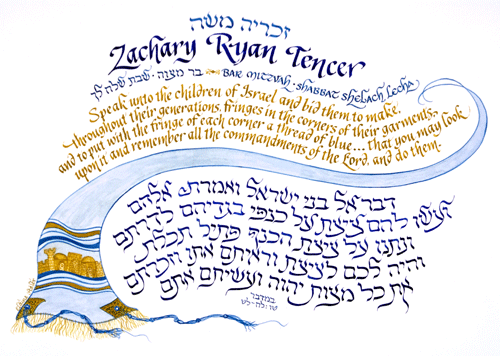 זכריה משה
Zachary Ryan Tencer
בר מצוה · שבת שלח לך BAR MITZVAH · SHABBAT Shelach Lecha
Speak unto the children of Israel and bid them to make
throughout their generations, fringes in the corners of their garments,
and to put with the fringe of each corner a thread of blue... That you may look
upon it and remember all the commandments of the Lord, and do them.
דבר אל בני ישראל ואמרת אלהם
ועשו להם ציצת על כנפי בגדיהם לדרתם
ונתנו על ציצת הכנף פתיל תכלת
והיה לכם לציצת וראיתם אתו וזכרתם
את כל מצות יהוה ועשיתם אתם
במדבר